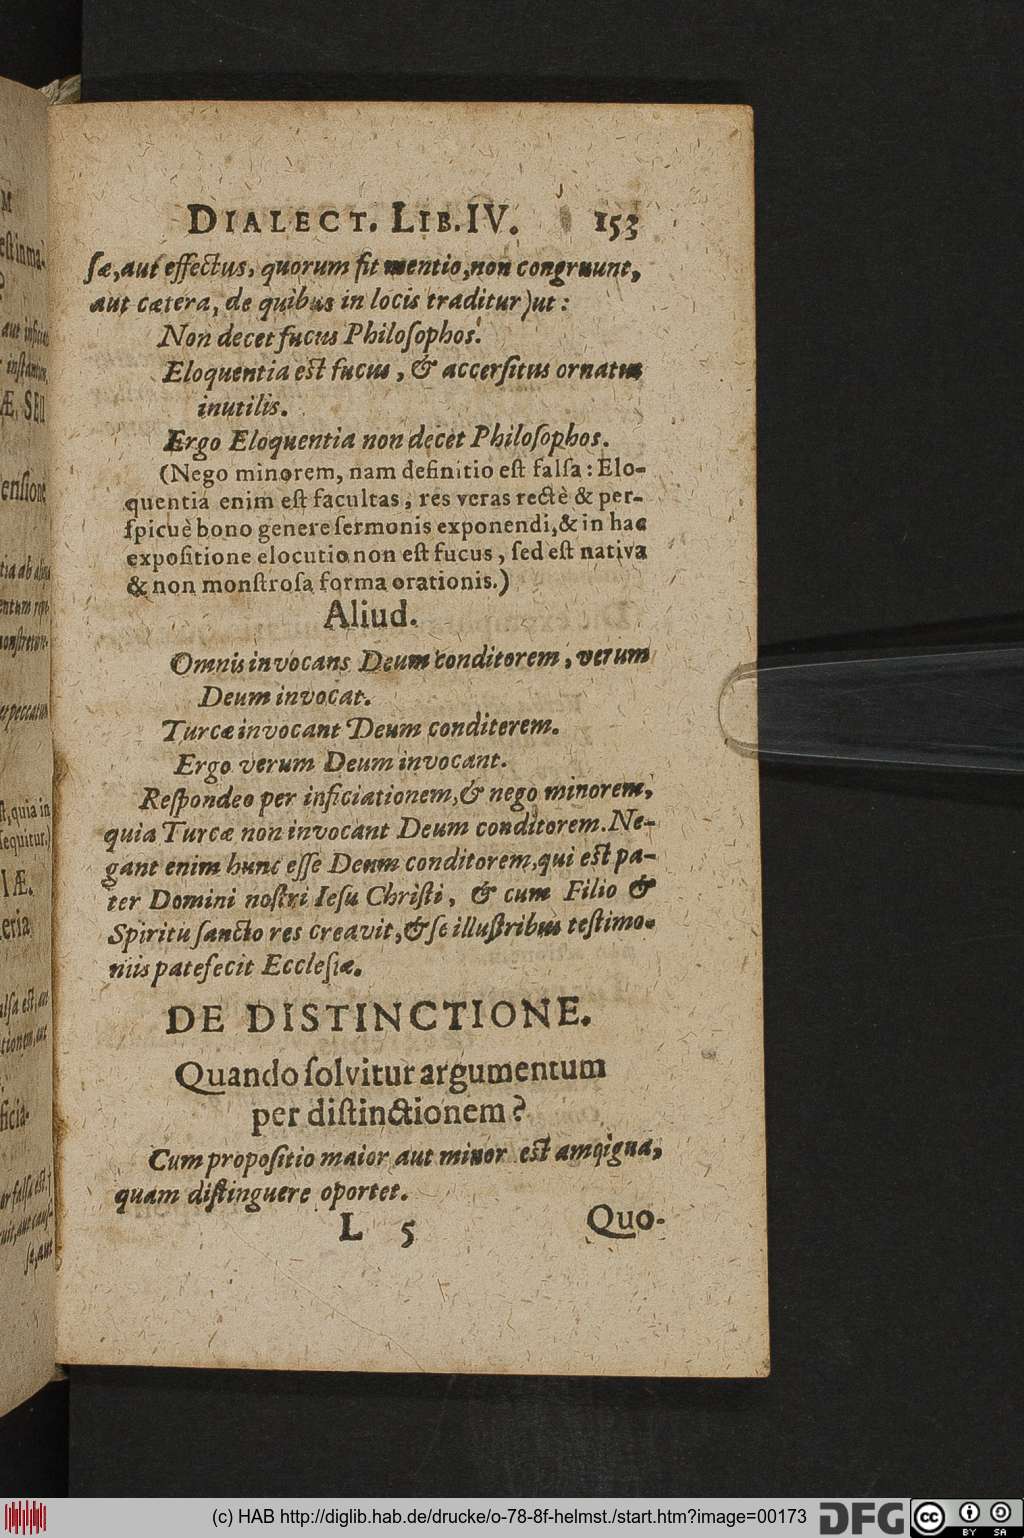 DIALECT. LIB. IV. 153
ſæ, aut effectus, quorum fit mentio, non congruunt,
aut cætera, de quibus in locis traditur) ut:
Non decet fucus Philoſophos.
Eloquentia est fucus, & accerſitus ornatus
inutilis.
Ergo Eloquentia non decet Philoſophos.
(Nego minorem, nam definitio eſt falſa: Elo-
quentia enim eſt facultas, res veras rectè & per-
ſpicuè bono genere ſermonis exponendi, & in hac
expoſitione elocutio non eſt fucus, ſed eſt nativa
& non monſtroſa forma orationis.)
Aliud.
Omnis invocans Deum conditorem, verum
Deum invocat.
Turcæ invocant Deum conditerem.
Ergo verum Deum invocant.
Reſpondeo per inficiationem, & nego minorem,
quia Turcæ non invocant Deum conditorem. Ne-
gant enim hunc eſſe Deum conditorem, qui est pa-
ter Domini noſtri Ieſu Chriſti, & cum Filio &
Spiritu ſancto res creavit, & ſe illuſtribus teſtimo-
niis patefecit Eccleſiæ.
DE DISTINCTIONE.
Quando ſolvitur argumentum
per diſtinctionem?
Cum propoſitio maior aut minor est amqigua,
quam diſtinguere oportet.
L 5 Quo-
(c) HAB http://diglib.hab.de/drucke/o-78-8f-helmst./start.htm?image=00173
DFG
cc BY SA